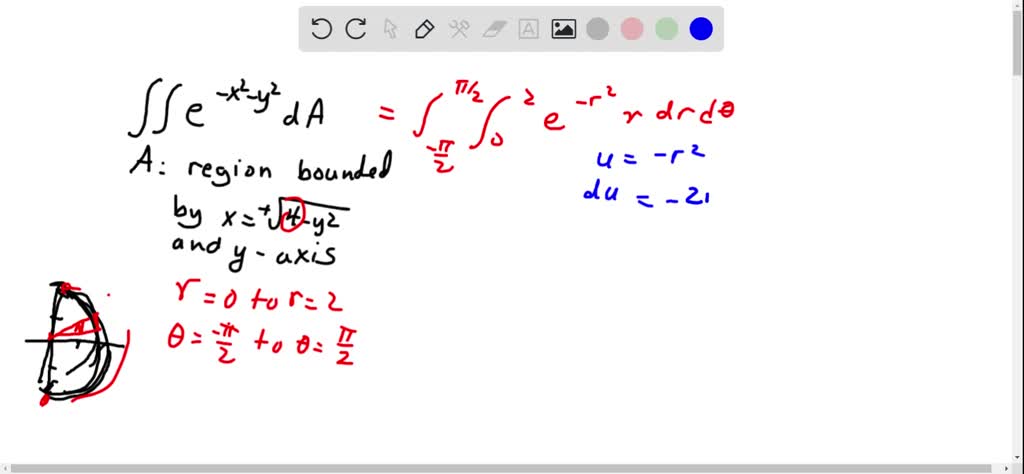 ∫∫ e^{-x²-y²} dA = ∫_{-π/2}^{π/2} ∫_0^2 e^{-r²} r dr dθ
A: region bounded
by x = +√(4-y²)
and y-axis
r = 0 to r = 2
θ = -π/2 to θ = π/2
u = -r²
du = -2r